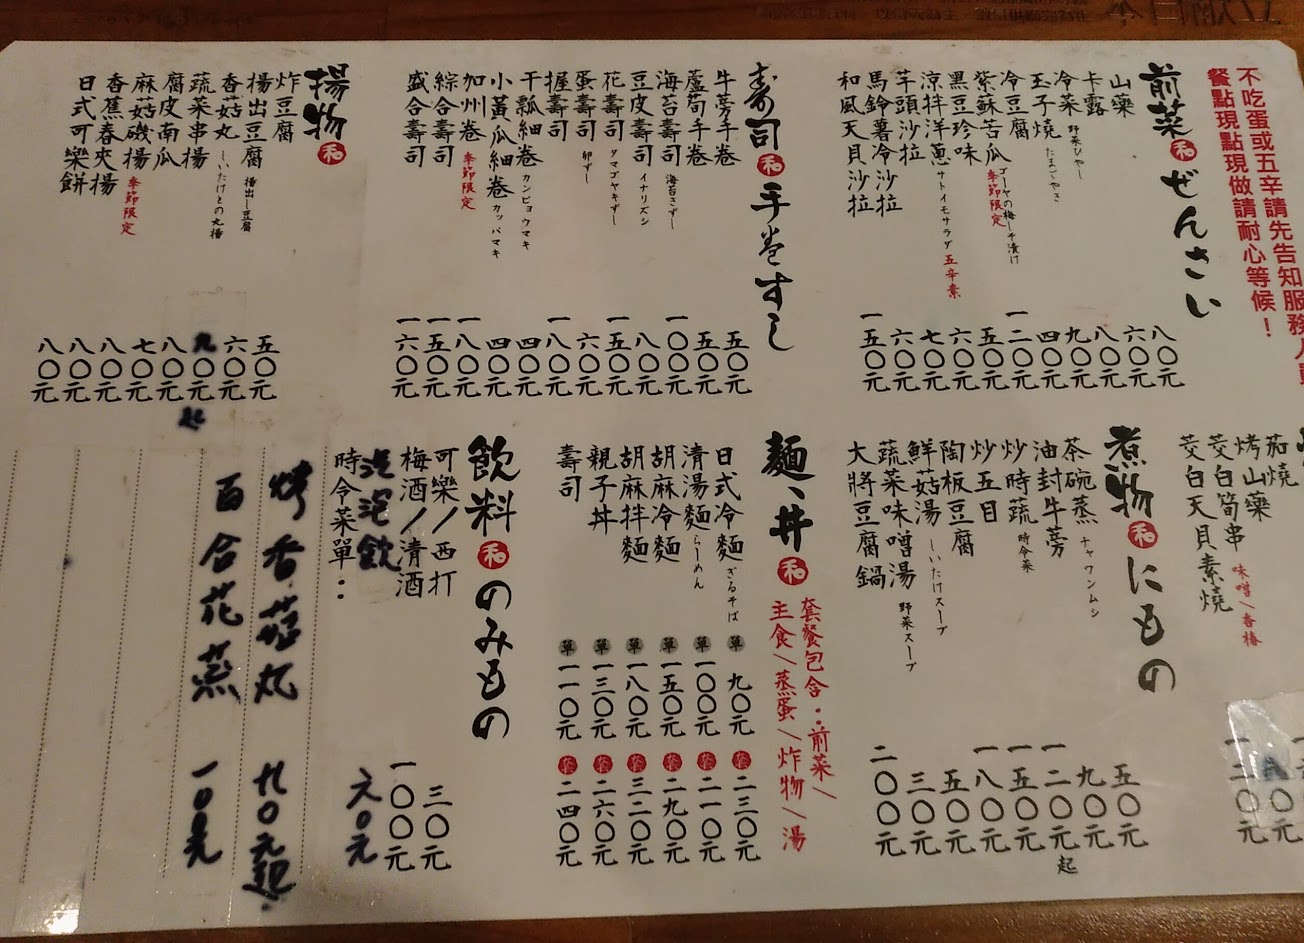 不吃蛋或五辛請先告知服務人員
餐點現點現做請耐心等候！
前菜 和 ぜんさい
山藥 八〇元
卡露 六〇元
冷菜 野菜ひやー 八〇元
玉子燒 たまごやき 九〇元
冷豆腐 四〇元
紫蘇苦瓜 ゴーヤの梅しそ漬け 季節限定 一二〇元
黑豆珍味 五〇元
涼拌洋蔥 五辛素 六〇元
芋頭沙拉 サトイモサラダ 七〇元
馬鈴薯冷沙拉 六〇元
和風天貝沙拉 一五〇元
壽司 和 手卷すし
牛蒡手卷 五〇元
蘆筍手卷 五〇元
海苔壽司 海苔さずー 一〇〇元
豆皮壽司 イナリズシ 八〇元
花壽司 タマゴヤキずー 一五〇元
蛋壽司 卵ずー 六〇元
握壽司 一八〇元
干瓢細卷 カンピョウマキ 四〇元
小黃瓜細卷 カッパマキ 四〇元
加州卷 季節限定 一八〇元
綜合壽司 一五〇元
盛合壽司 一六〇元
揚物 和
炸豆腐 五〇元
揚出豆腐 揚出し豆腐 六〇元
香菇丸 しいたけとの丸揚 九〇元起
蔬菜串揚 八〇元
腐皮南瓜 七〇元
麻菇磯揚 季節限定 八〇元
香蕉春夾揚 八〇元
日式可樂餅 八〇元
茄燒
烤山藥
茭白筍串 味噌\香椿
茭白天貝素燒
一二〇元
煮物 和 にもの
茶碗蒸 チャワンムシ 五〇元
油封牛蒡 九〇元
炒時蔬 時令菜 一二〇元起
炒五目 一五〇元
陶板豆腐 一八〇元
鮮菇湯 しいたけスープ 五〇元
蔬菜味噌湯 野菜スープ 三〇元
大將豆腐鍋 二〇〇元
麵、丼 和
套餐包含：前菜\
主食\蒸蛋\炸物\湯
日式冷麵 ざるそば 單 九〇元 套 二三〇元
清湯麵 らーめん 單 一〇〇元 套 二一〇元
胡麻冷麵 單 一五〇元 套 二九〇元
胡麻拌麵 單 一八〇元 套 三二〇元
親子丼 單 一三〇元 套 二六〇元
壽司 單 一一〇元 套 二四〇元
飲料 和 のみもの
可樂/西打 三〇元
梅酒/清酒 一〇〇元
汽泡飲 六〇元
時令菜單：
烤香菇丸 九〇元起
百合花蒸 一〇〇元